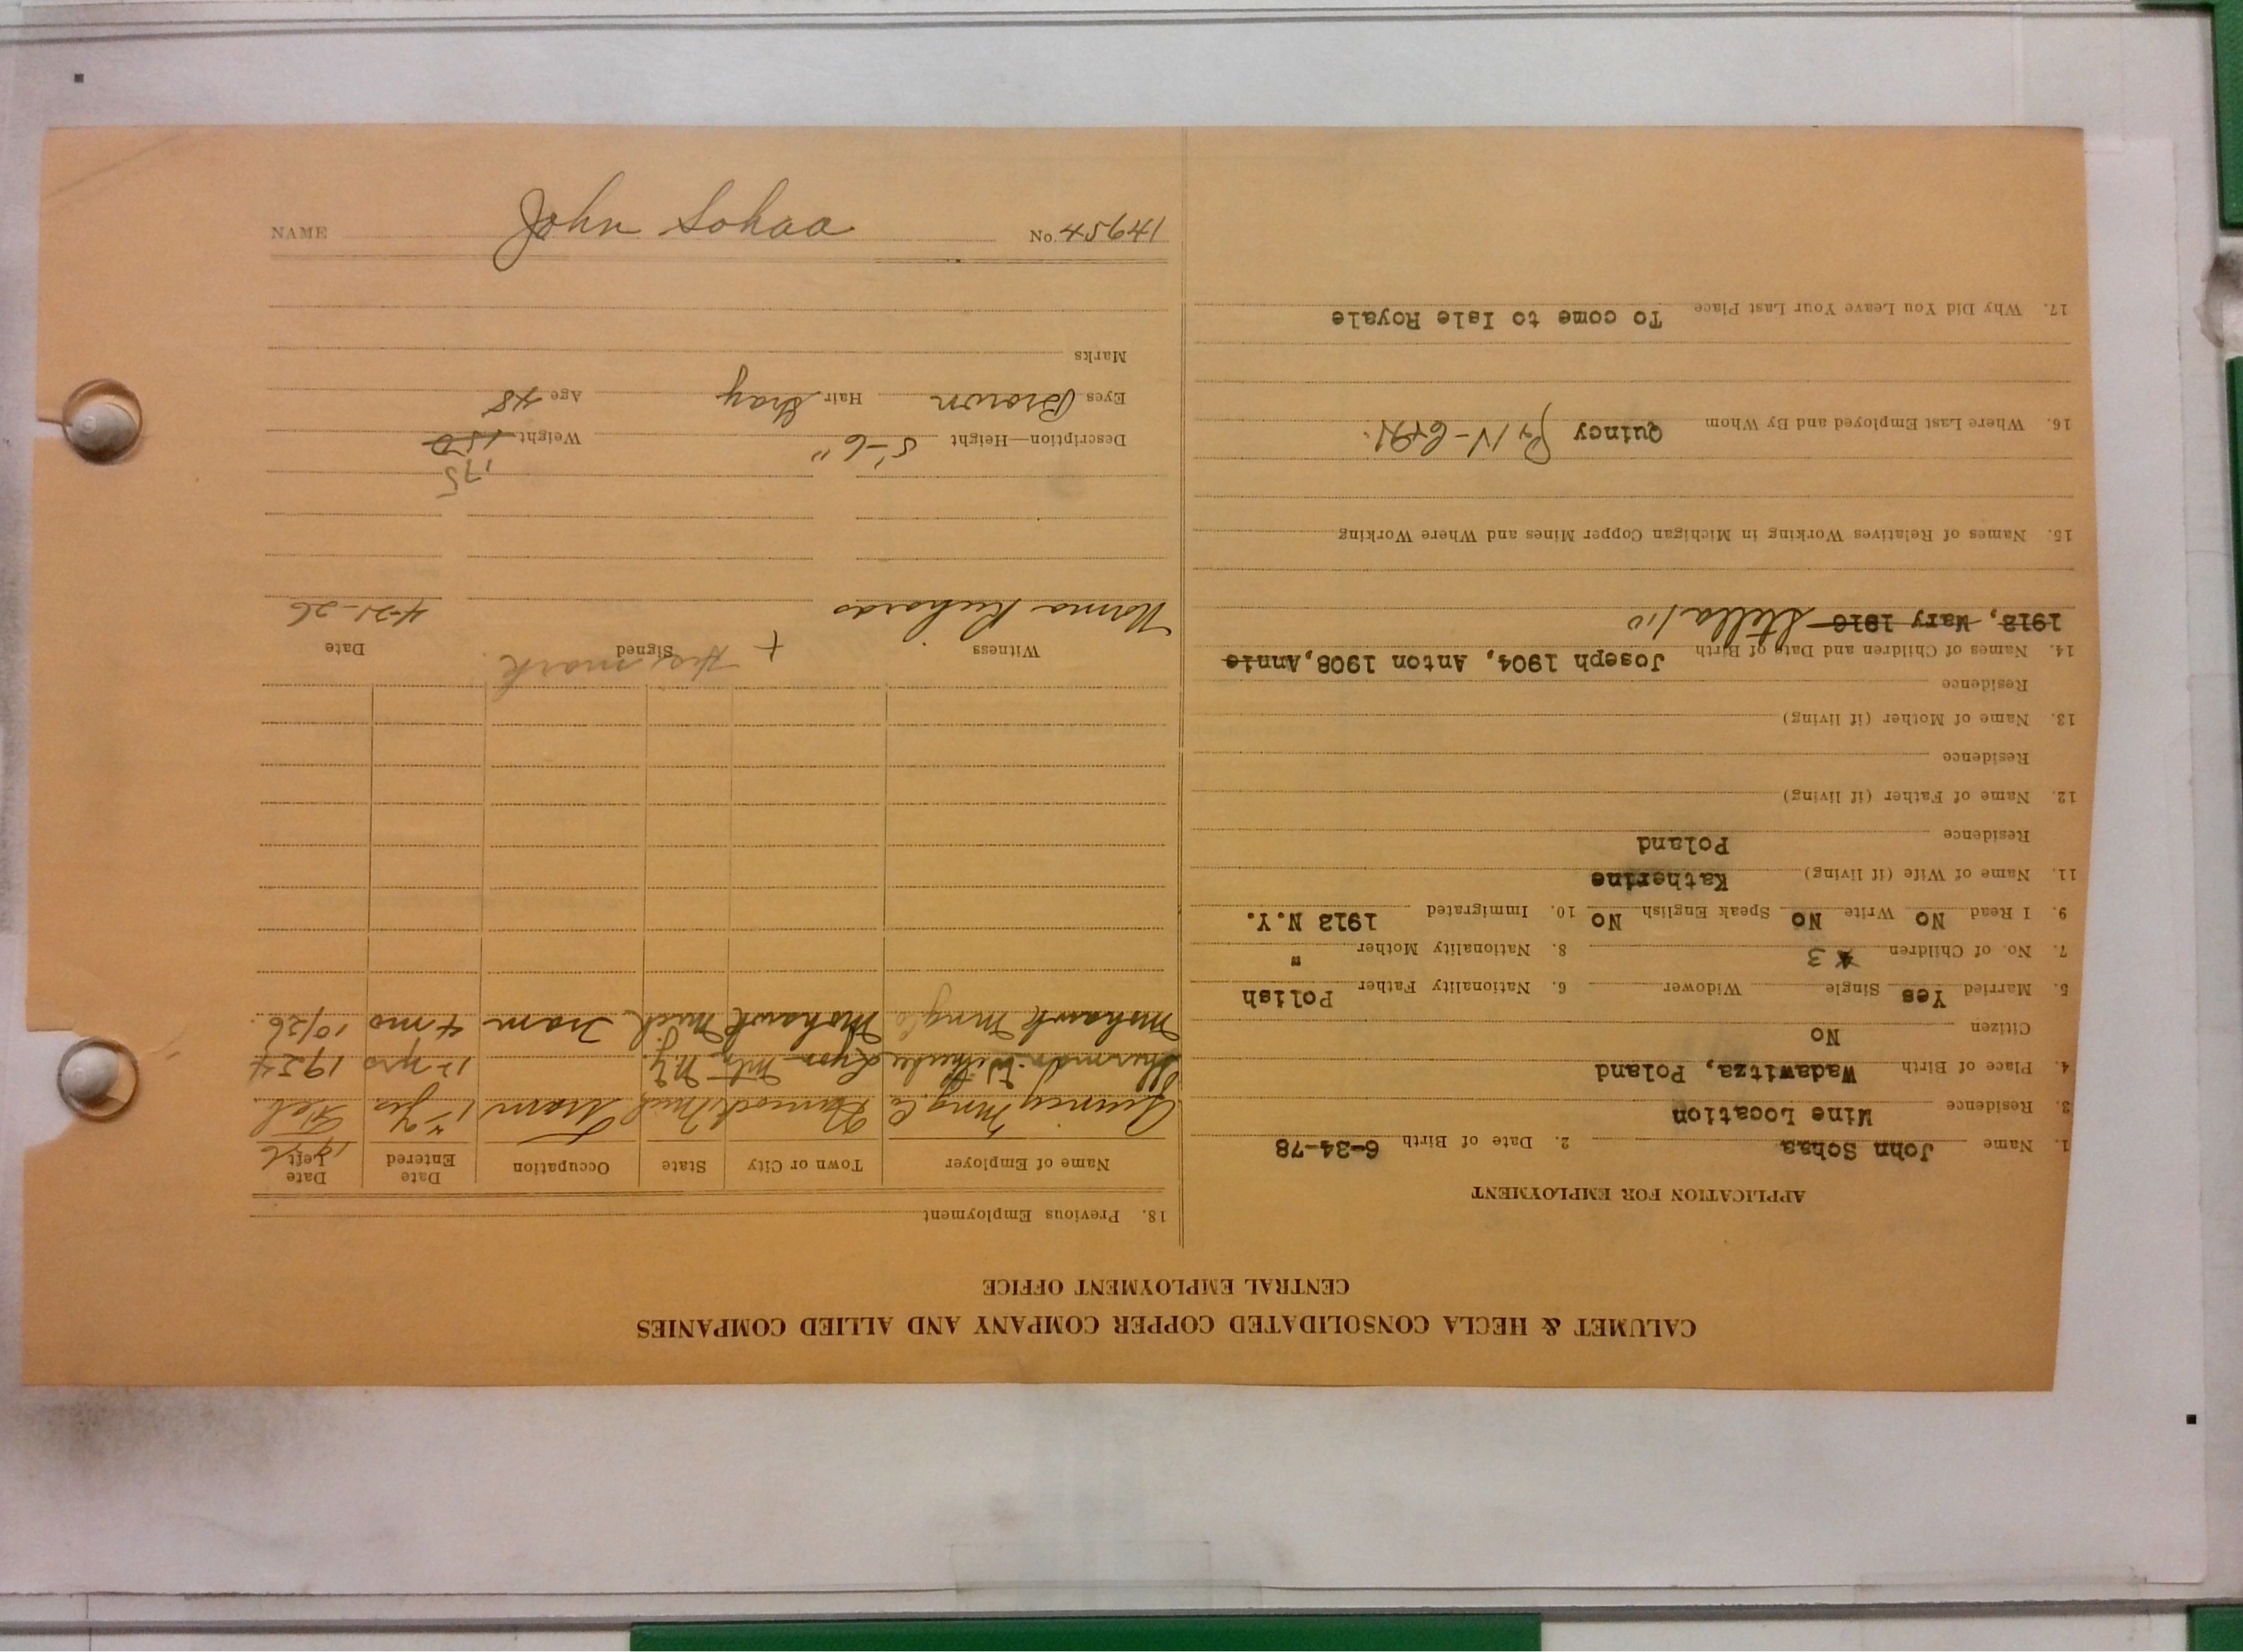 CALUMET & HECLA CONSOLIDATED COPPER COMPANY AND ALLIED COMPANIES
CENTRAL EMPLOYMENT OFFICE
APPLICATION FOR EMPLOYMENT
1. Name John Sohaa 2. Date of Birth 6-24-78
3. Residence Mine Location
4. Place of Birth Wadawitza, Poland
Citizen No
5. Married Yes Single Widower 6. Nationality Father Polish
7. No. of Children 4 3 8. Nationality Mother "
9. I Read No Write No Speak English No 10. Immigrated 1912 N.Y.
11. Name of Wife (if living) Katherine
Residence Poland
12. Name of Father (if living)
Residence
13. Name of Mother (if living)
Residence
14. Names of Children and Date of Birth Joseph 1904, Anton 1908, Annie
1912, Mary 1916 Stella
15. Names of Relatives Working in Michigan Copper Mines and Where Working
16. Where Last Employed and By Whom Quincy
17. Why Did You Leave Your Last Place To come to Isle Royale
18. Previous Employment
Name of Employer Town or City State Occupation Date Entered Date Left
Quincy Mng Co Hancock Mich Tram 1 1926 Feb
Lyon Mt. N.Y. yrs 1924
Mohawk Mng Co Mohawk Mich Tram 4 mo 10/26
Witness Signed Date
Norma Richards + His mark 4-21-26
175
Description—Height 5'-6" Weight 150
Eyes Brown Hair Gray Age 48
Marks
NAME John Sohaa No. 45641